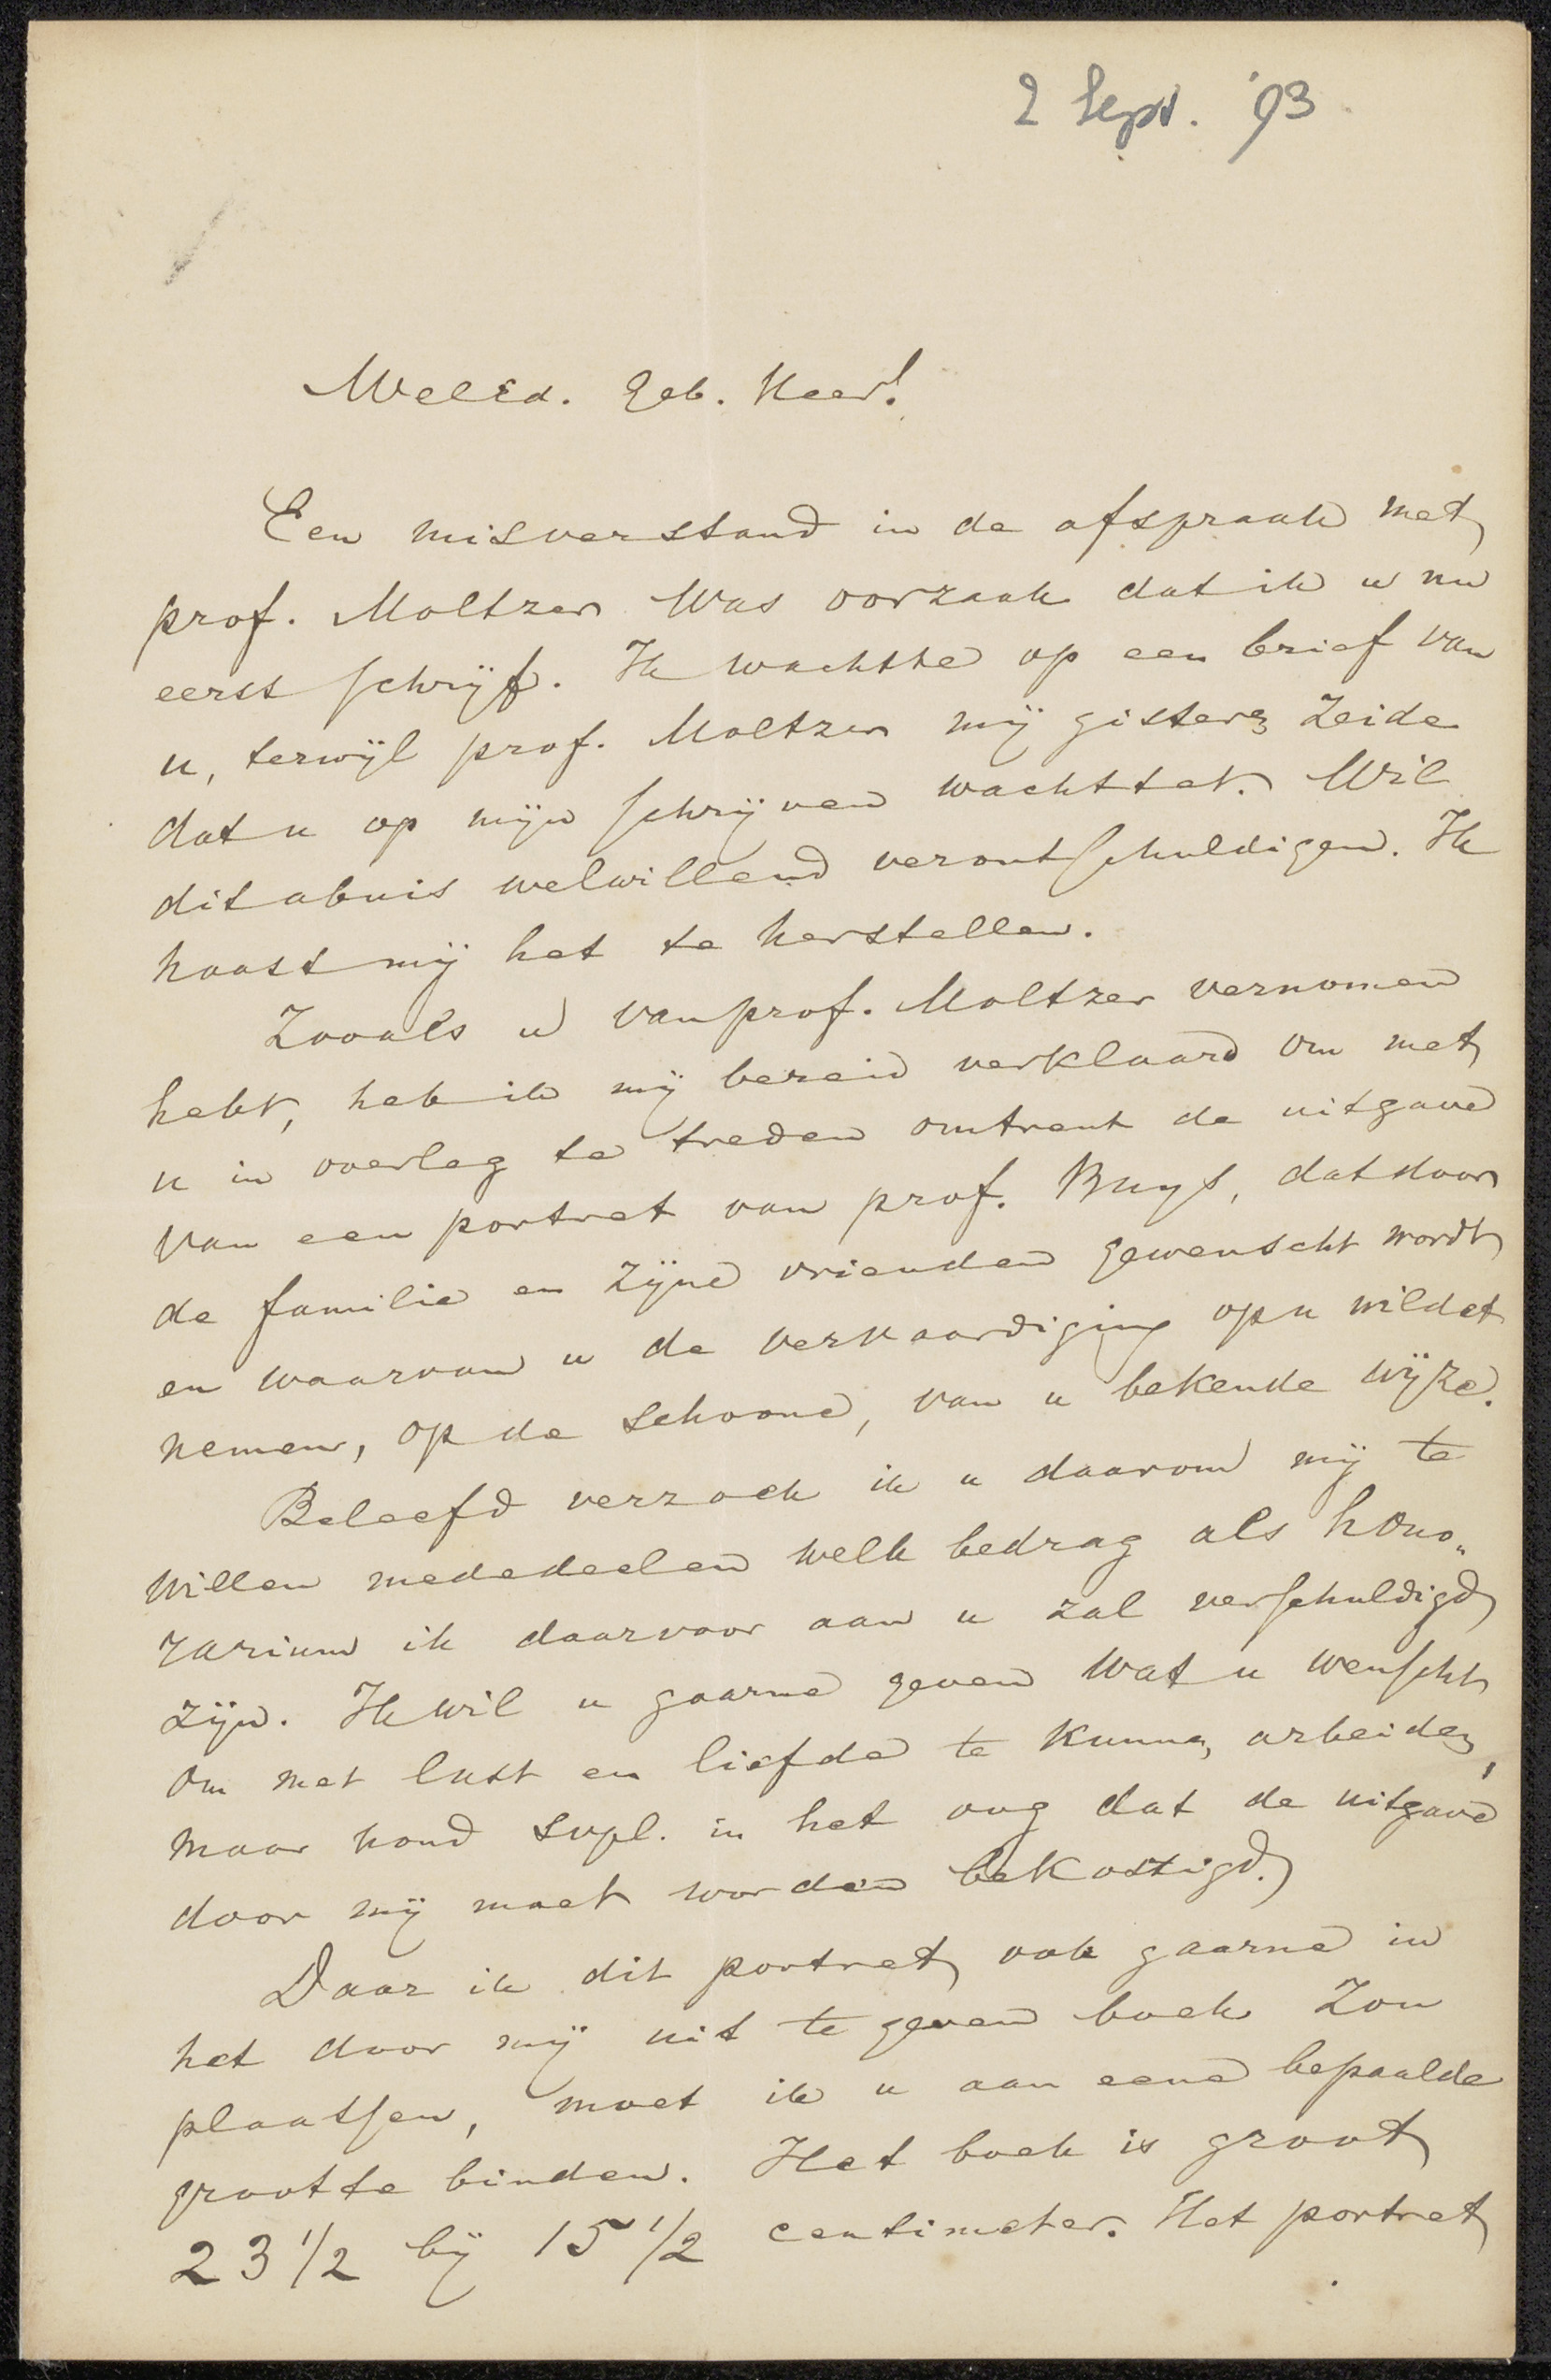 2 Sept. '93
WelEd. Geb. Heer!
Een misverstand in de afspraak met
prof. Moltzer was oorzaak dat ik u nu
eerst schrijf. Ik wachtte op een brief van
u, terwijl prof. Moltzer mij gisteren zeide
dat u op mijn schrijven wachttet. Wil
dit abuis welwillend verontschuldigen. Ik
haast mij het te herstellen.
Zooals u van prof. Moltzer vernomen
hebt, heb ik mij bereid verklaard om met
u in overleg te treden omtrent de uitgave
van een portret van prof. Buys, dat door
de familie en zijne vrienden gewenscht wordt
en waarvan u de vervaardiging op u wildet
nemen, op de schoone, van u bekende wijze.
Beleefd verzoek ik u daarom mij te
willen mededeelen welk bedrag als hono„
rarium ik daarvoor aan u zal verschuldigd
zijn. Ik wil u gaarne geven wat u wenscht
om met lust en liefde te kunnen arbeiden,
maar houd svpl. in het oog dat de uitgave
door mij moet worden bekostigd.
Daar ik dit portret ook gaarne in
het door mij uit te geven boek zou
plaatsen, moet ik u aan eene bepaalde
grootte binden. Het boek is groot
23 1/2 bij 15 1/2 centimeter. Het portret